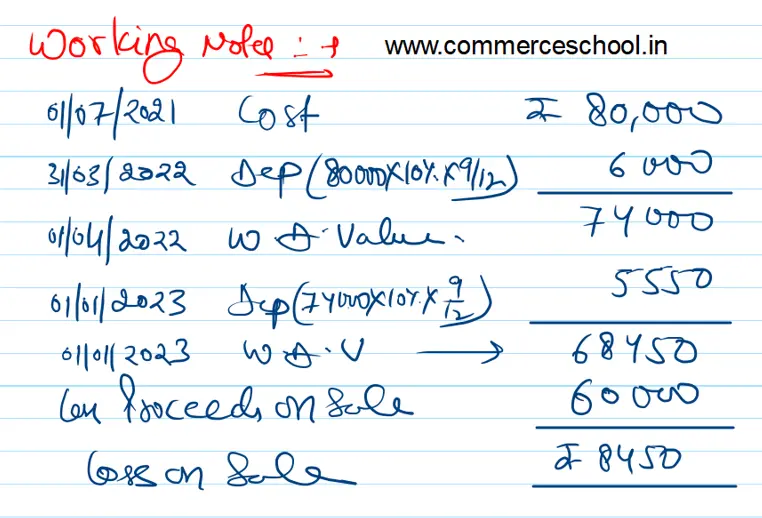 Working Notes :- www.commerceschool.in
01/07/2021 Cost ₹ 80,000
31/03/2022 Dep (80000X10%X9/12) 6000
01/04/2022 W D. Value. 74000
01/01/2023 Dep (74000X10%X 9/12) 5550
01/01/2023 W D. V → 68450
Less Proceeds on Sale 60000
Loss on Sale ₹ 8450